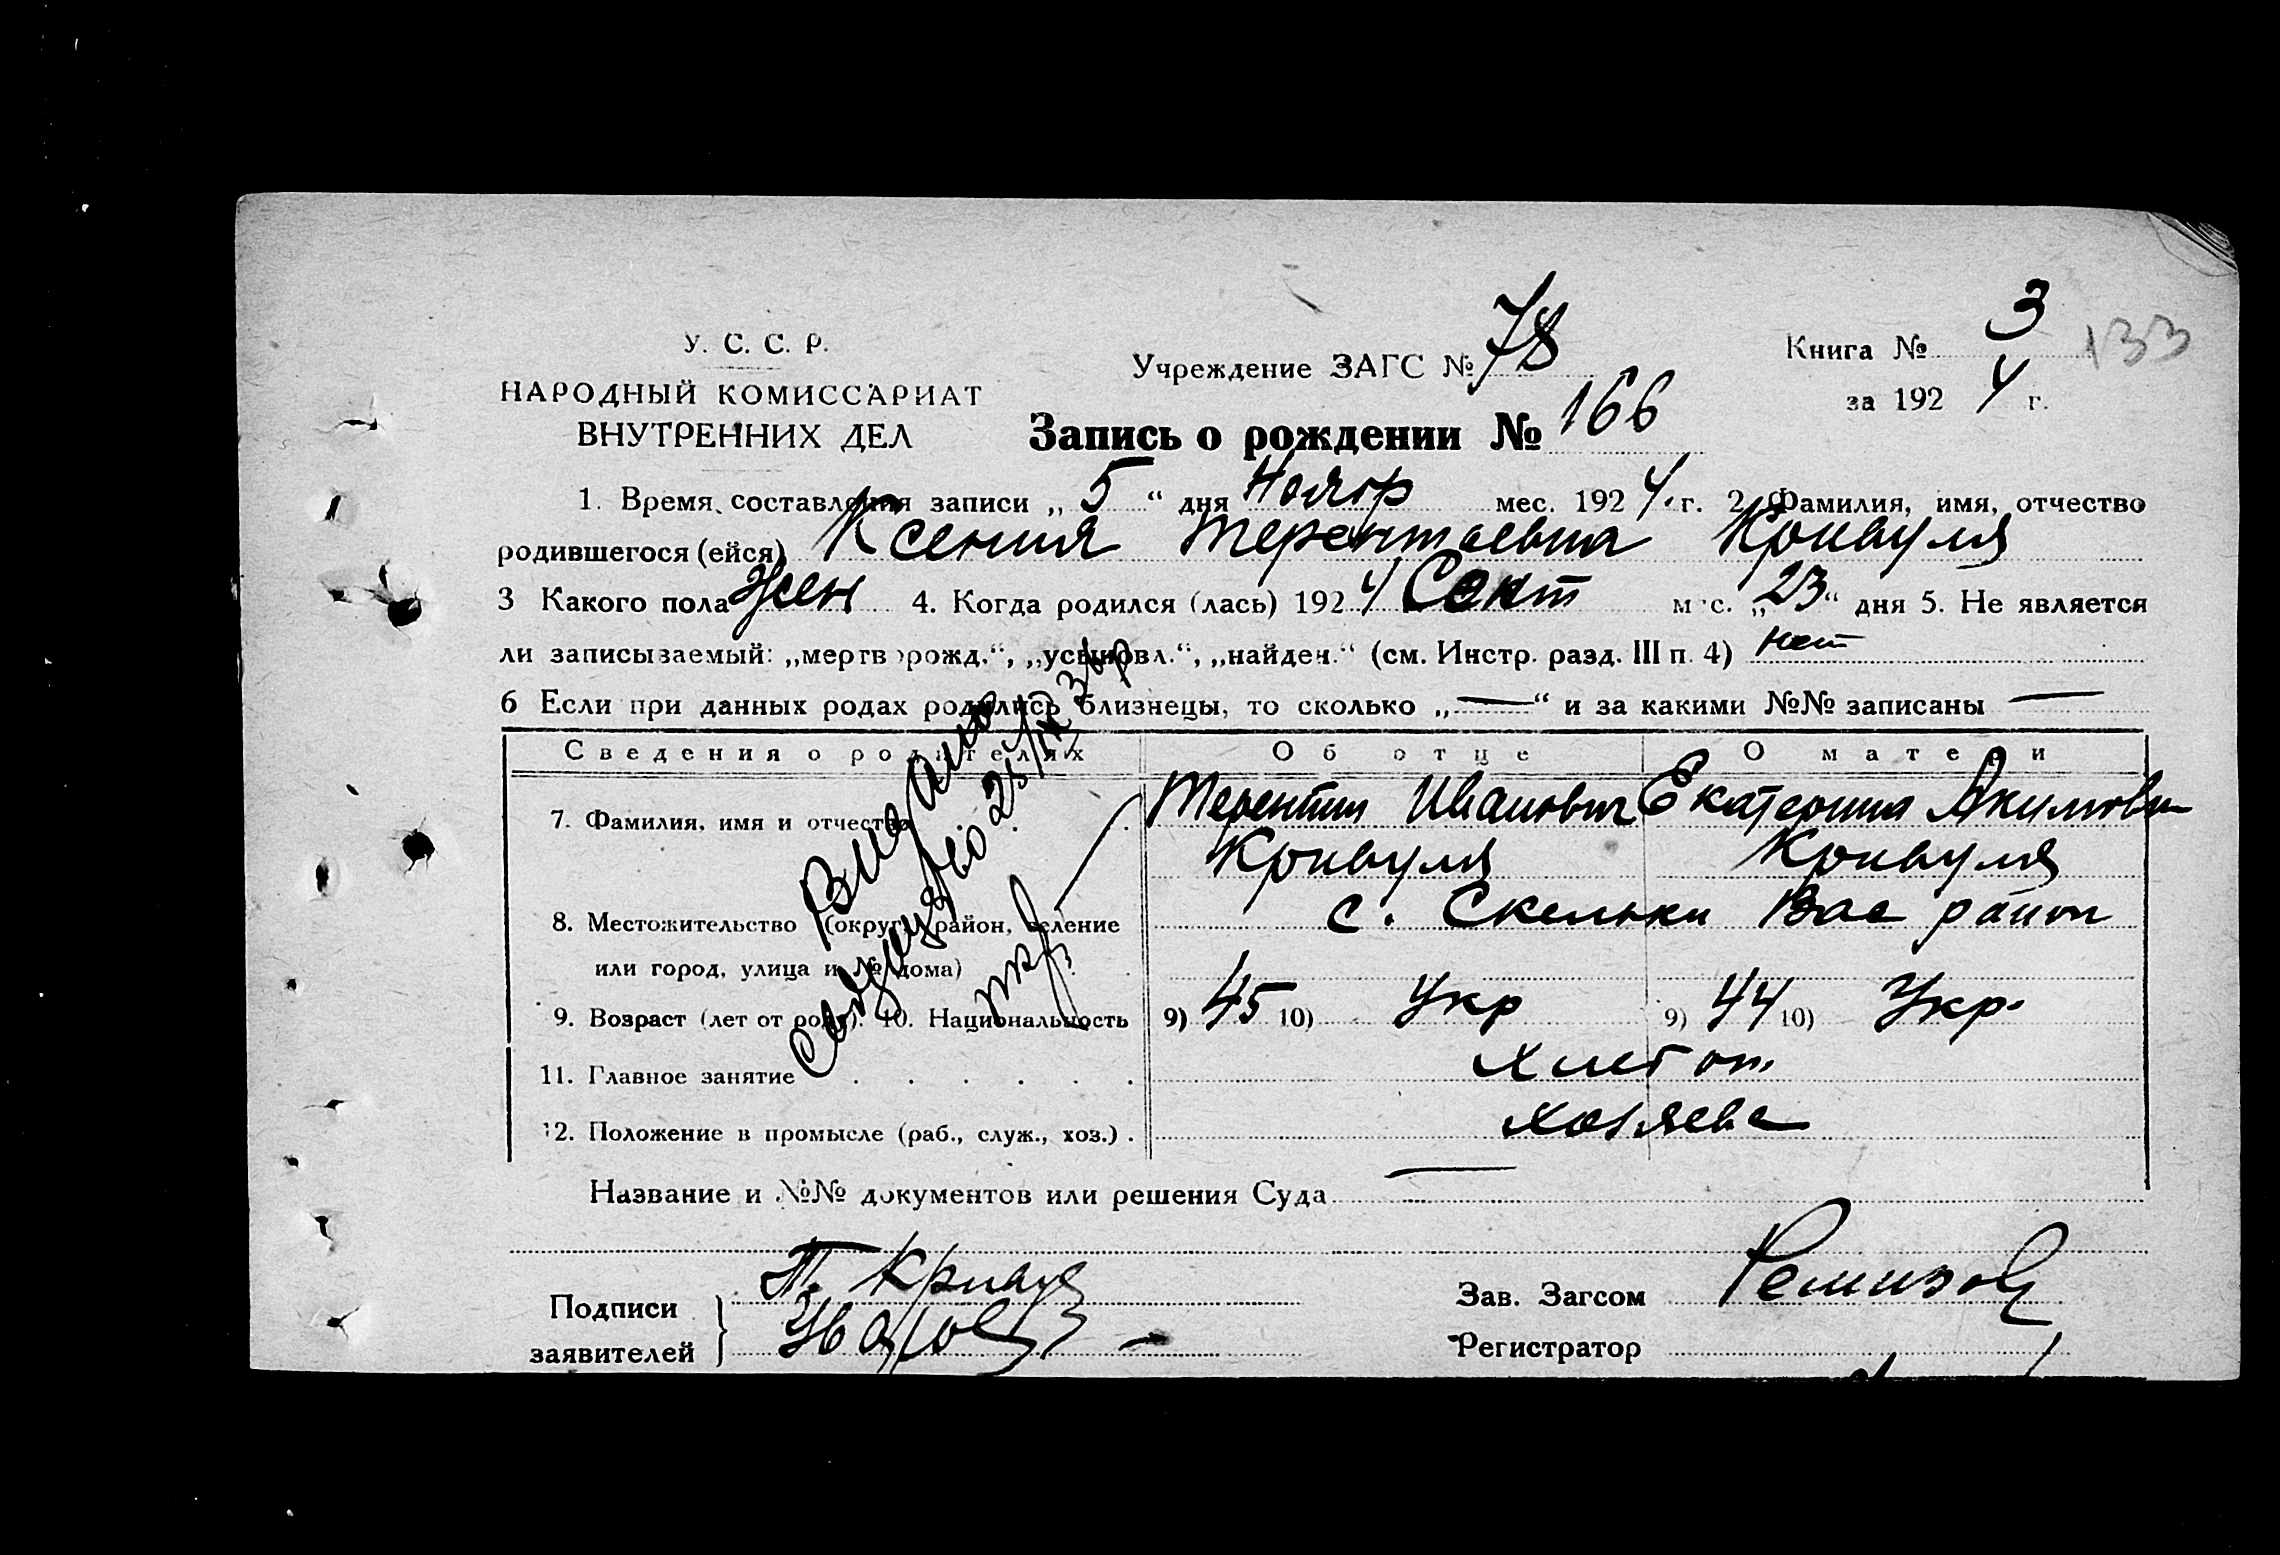 У. С. С. Р.
НАРОДНЫЙ КОМИССАРИАТ
ВНУТРЕННИХ ДЕЛ
Учреждение ЗАГС № 78
Книга № 3 133
за 1924 г.
Запись о рождении № 166
1. Время составления записи „ 5 “ дня Ноябр мес. 1924 г. 2. Фамилия, имя, отчество
родившегося (ейся) Ксения Терентьевна Кривуля
3 Какого пола жен 4. Когда родился (лась) 1924 Сент мес. „ 23 “ дня 5. Не является
ли записываемый: „мертворожд.“, „усыновл.“, „найден.“ (см. Инстр. разд. III п. 4) нет
6 Если при данных родах родились близнецы, то сколько „ — “ и за какими №№ записаны —
Сведения о родителях Об отце О матери
7. Фамилия, имя и отчество Терентий Иванович Екатерина Акимовн
Кривуля Кривуля
8. Местожительство (округ, район, селение с. Скельки Вас район
или город, улица и № дома)
9. Возраст (лет от роду). 10. Национальность 9) 45 10) Укр 9) 44 10) Укр.
11. Главное занятие . . . . . . хлебоп.
12. Положение в промысле (раб., служ., хоз.) . хозяева
Видано
Название и №№ документов или решения Суда —
Подписи заявителей } Т. Кривуля
Зав. Загсом Ремизов
Регистратор